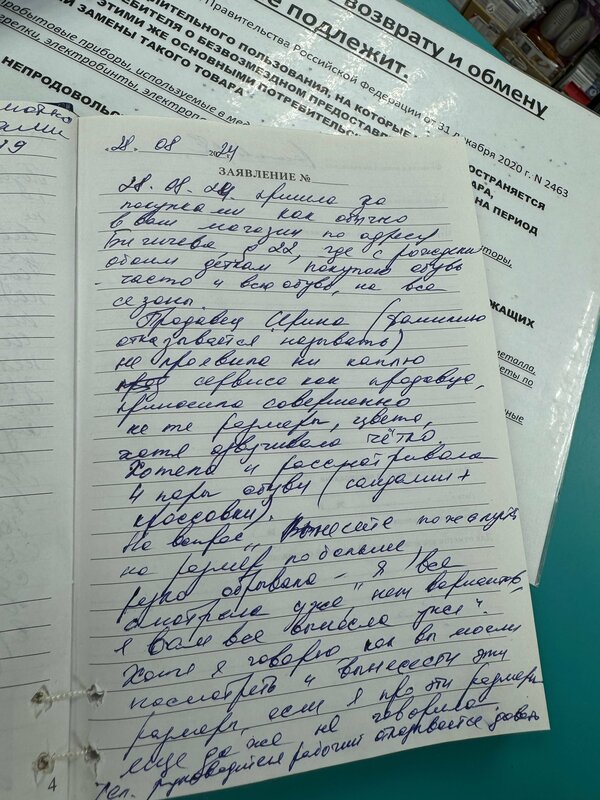 возврату и обмену
не подлежит.
Правительства Российской Федерации от 31 декабря 2020 г. N 2463
ДЛИТЕЛЬНОГО ПОЛЬЗОВАНИЯ, НА КОТОРЫЕ НЕ РАСПРОСТРАНЯЕТСЯ
О БЕЗВОЗМЕЗДНОМ ПРЕДОСТАВЛЕНИИ
ЭТИМИ ЖЕ ОСНОВНЫМИ ПОТРЕБИТЕЛЬСКИМИ
ЗАМЕНЫ ТАКОГО ТОВАРА
НА ПЕРИОД
приборы, используемые в
электробинты,
НЕПРОДОВОЛЬС
металла,
28. 08 2024
ЗАЯВЛЕНИЕ №
28.08.24. пришла за
покупками как обычно
в ваш магазин по адресу
Бичичева, д 22, где с рождения
обоим деткам покупаю обувь
- часто и всю обувь, на все
сезоны.
Продавец Ирина (фамилию
отказывается называть)
не проявила ни каплю
сервиса как продавца,
приносила совершенно
не те размеры, цвета,
хотя озвучивала чётко.
Хотела и рассматривала
4 пары обуви (сандали +
кроссовки).
На вопрос „Вынесите пожалуйста
на размер побольше"
резко обрывала - „я все
смотрела уже", нет вариантов,
я Вам все вынесла уже".
Хотя я говорю как вы могли
посмотреть и вынести эти
размеры, если я про эти размеры
еще даже не говорила
Тел. руководителя рабочий отказывается давать
4